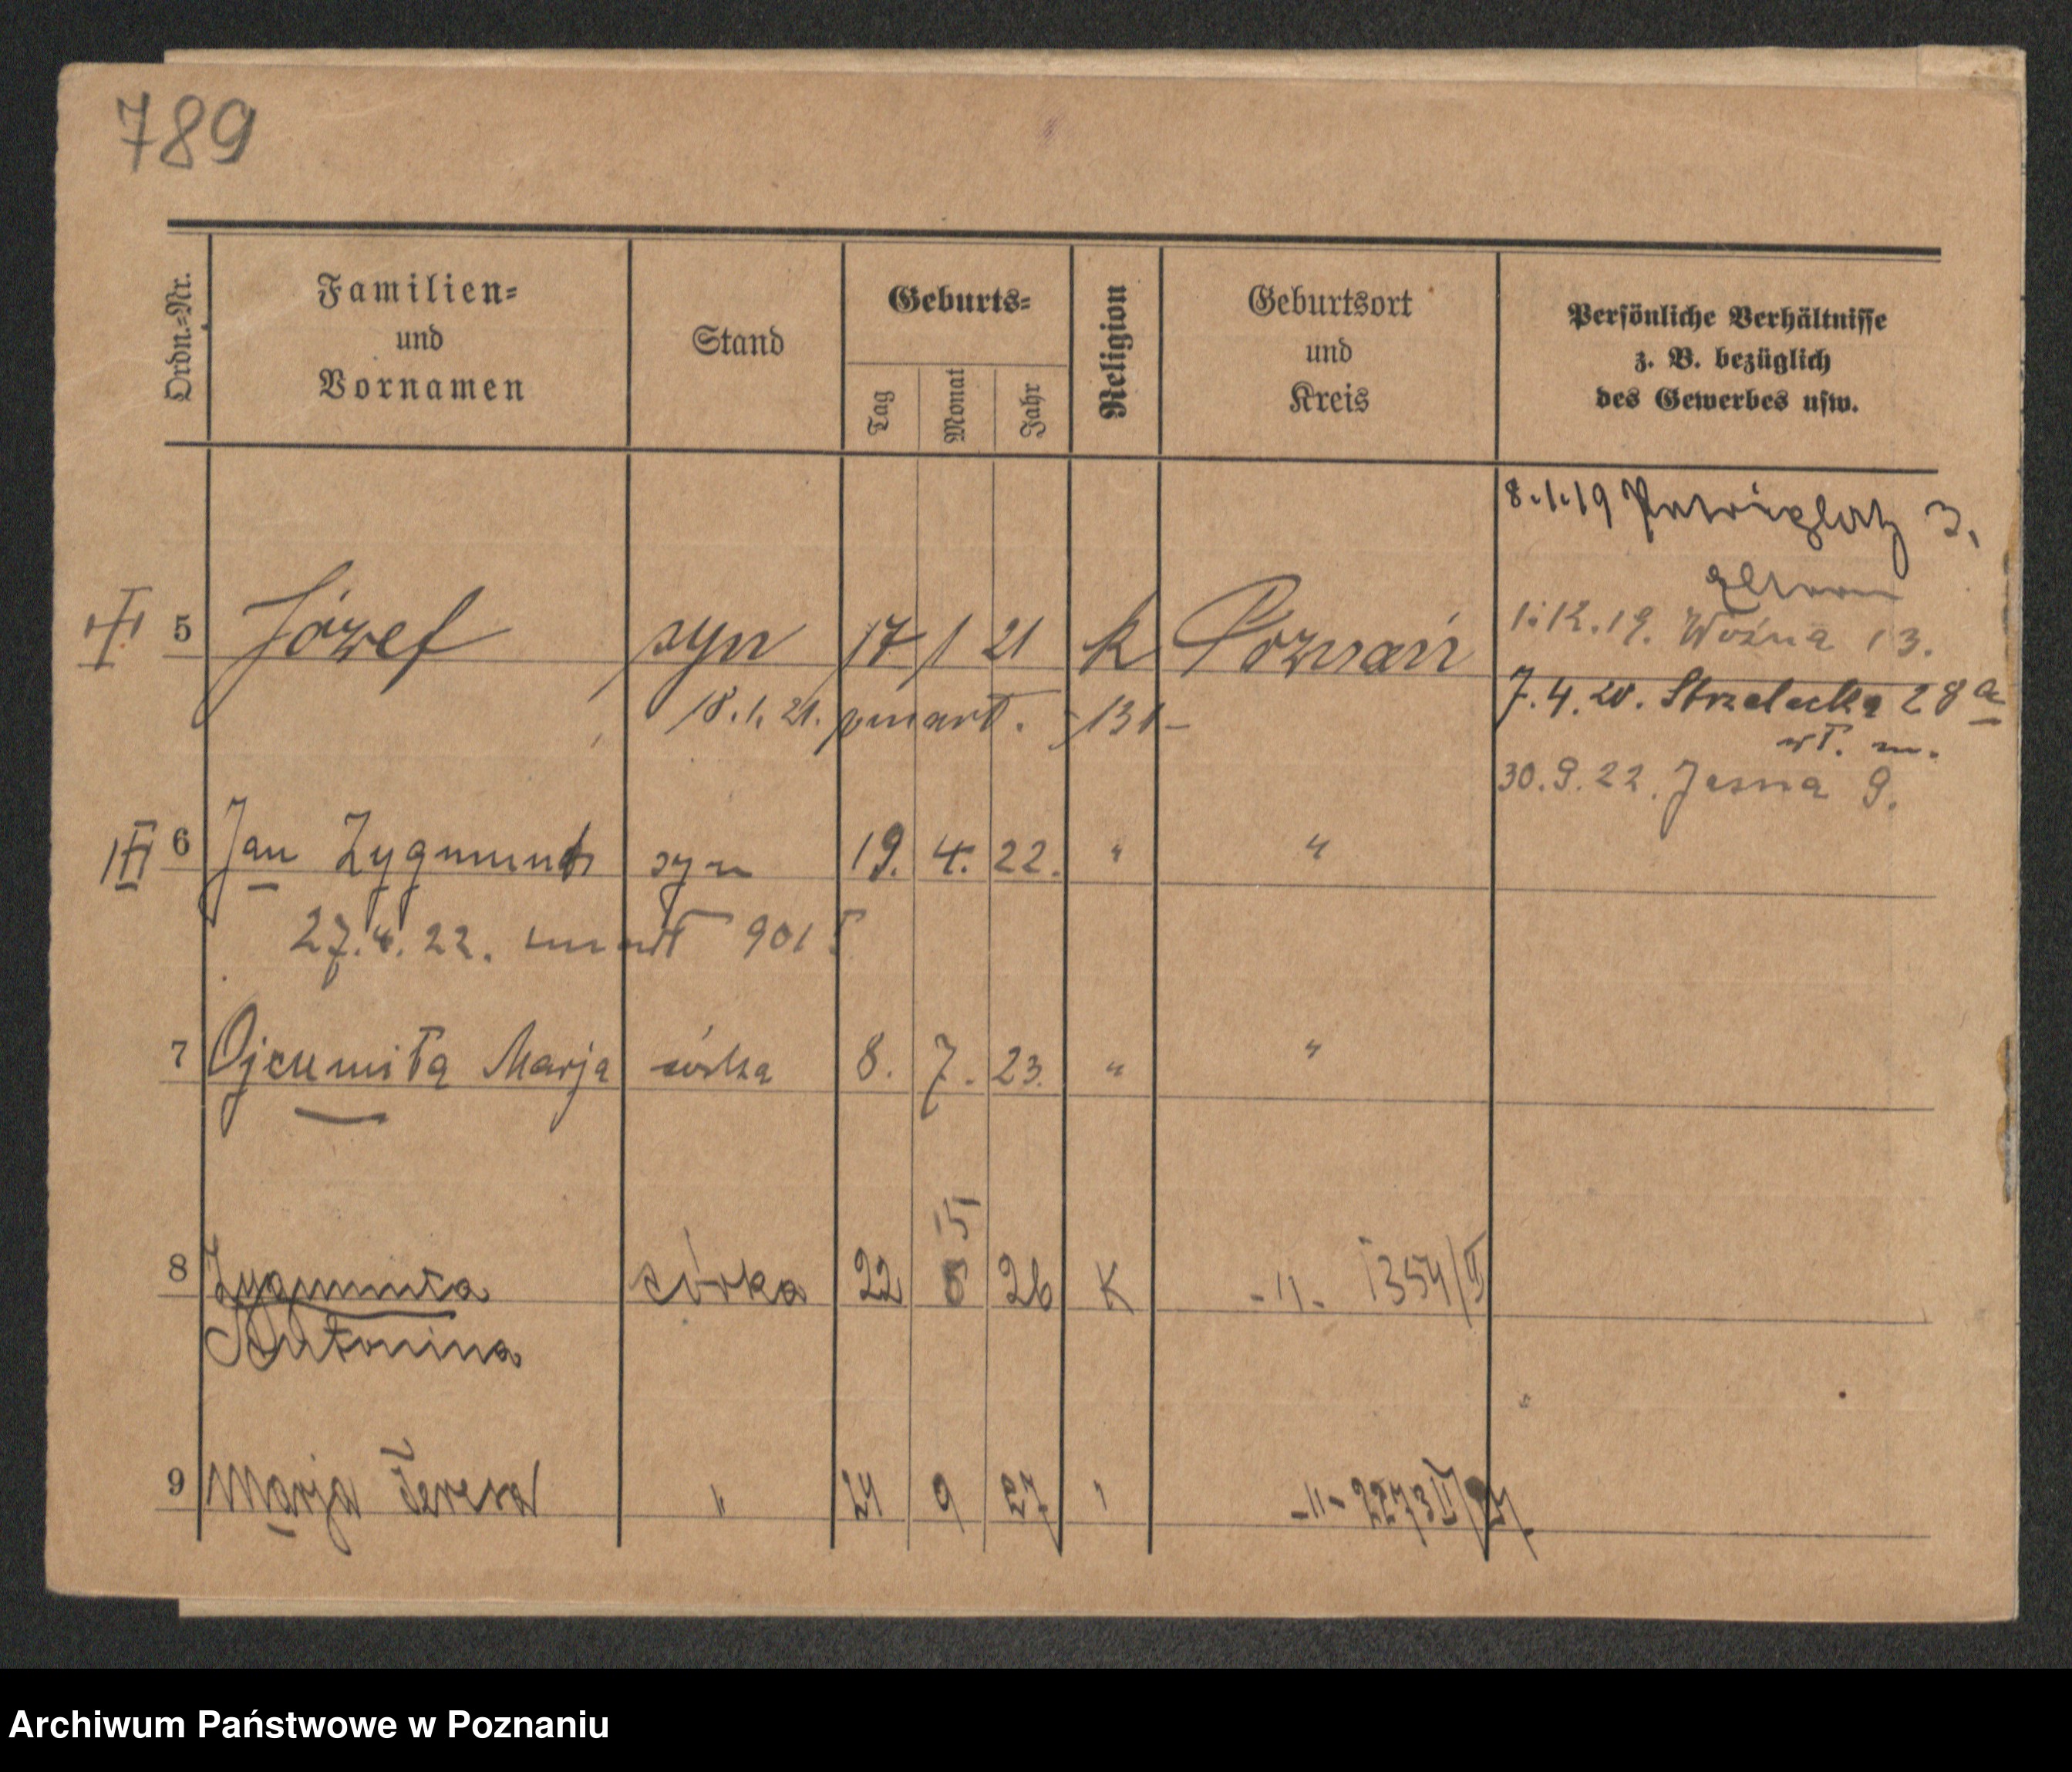 789
Ordn.-Nr.
Familien-
und
Vornamen
Stand
Geburts-
Tag
Monat
Jahr
Religion
Geburtsort
und
Kreis
Persönliche Verhältnisse
z. B. bezüglich
des Gewerbes usw.
8.1.19 Petriplatz 3.
Eltern
1.12.19. Woźna 13.
5 Józef syn 17 1 21 k Poznań
7.4.20. Strzelecka 28a
18.1.21. zmarł. -131-
wł. m.
30.9.22. Jasna 9.
6 Jan Zygmunt syn 19. 4. 22. " "
27.4.22. umarł 901
7 Ojcumiła Marja córka 8. 7. 23. " "
5
8 Zygmunta córka 22 26 K -"- 1354/II
Antonina
9 Marja Teresa " 24 9 27 " -"- 2273 II/27
Archiwum Państwowe w Poznaniu